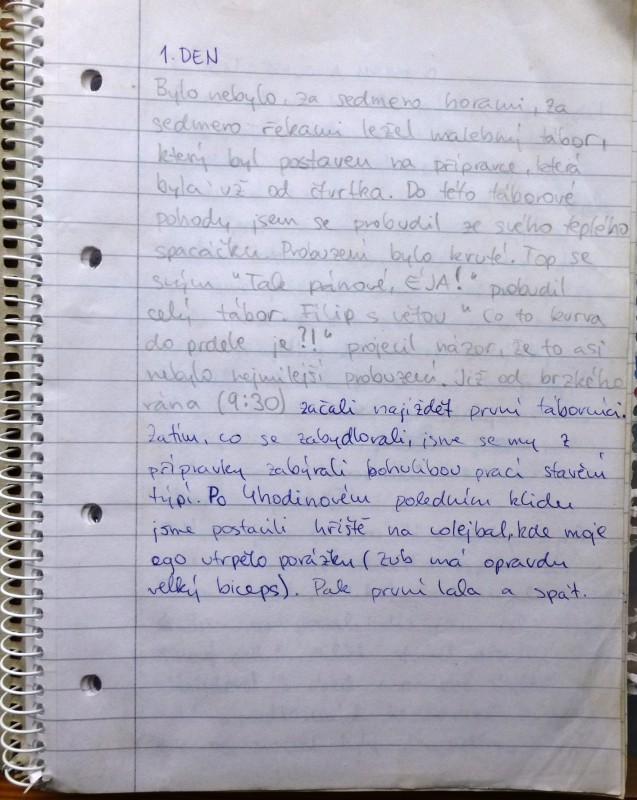 1. DEN
Bylo nebylo, za sedmero horami, za
sedmero řekami ležel malebný tábor,
který byl postaven na přípravce, která
byla už od čtvrtka. Do této táborové
pohody jsem se probudil ze svého teplého
spacáčku. Probuzení bylo kruté. Top se
svým "Tak pánové, EJA!" probudil
celý tábor. Filip s větou "Co to kurva
do prdele je?!" projevil názor, že to asi
nebylo nejmilejší probuzení. Již od brzkého
rána (9:30) začali najíždět první táborníci.
Zatím, co se zabydlovali, jsme se my z
přípravky zabývali bohulibou prací stavění
týpí. Po 4hodinovém poledním klidu
jsme postavili hřiště na volejbal, kde moje
ego utrpělo porážku (zub má opravdu
velký biceps). Pak první lala a spát.